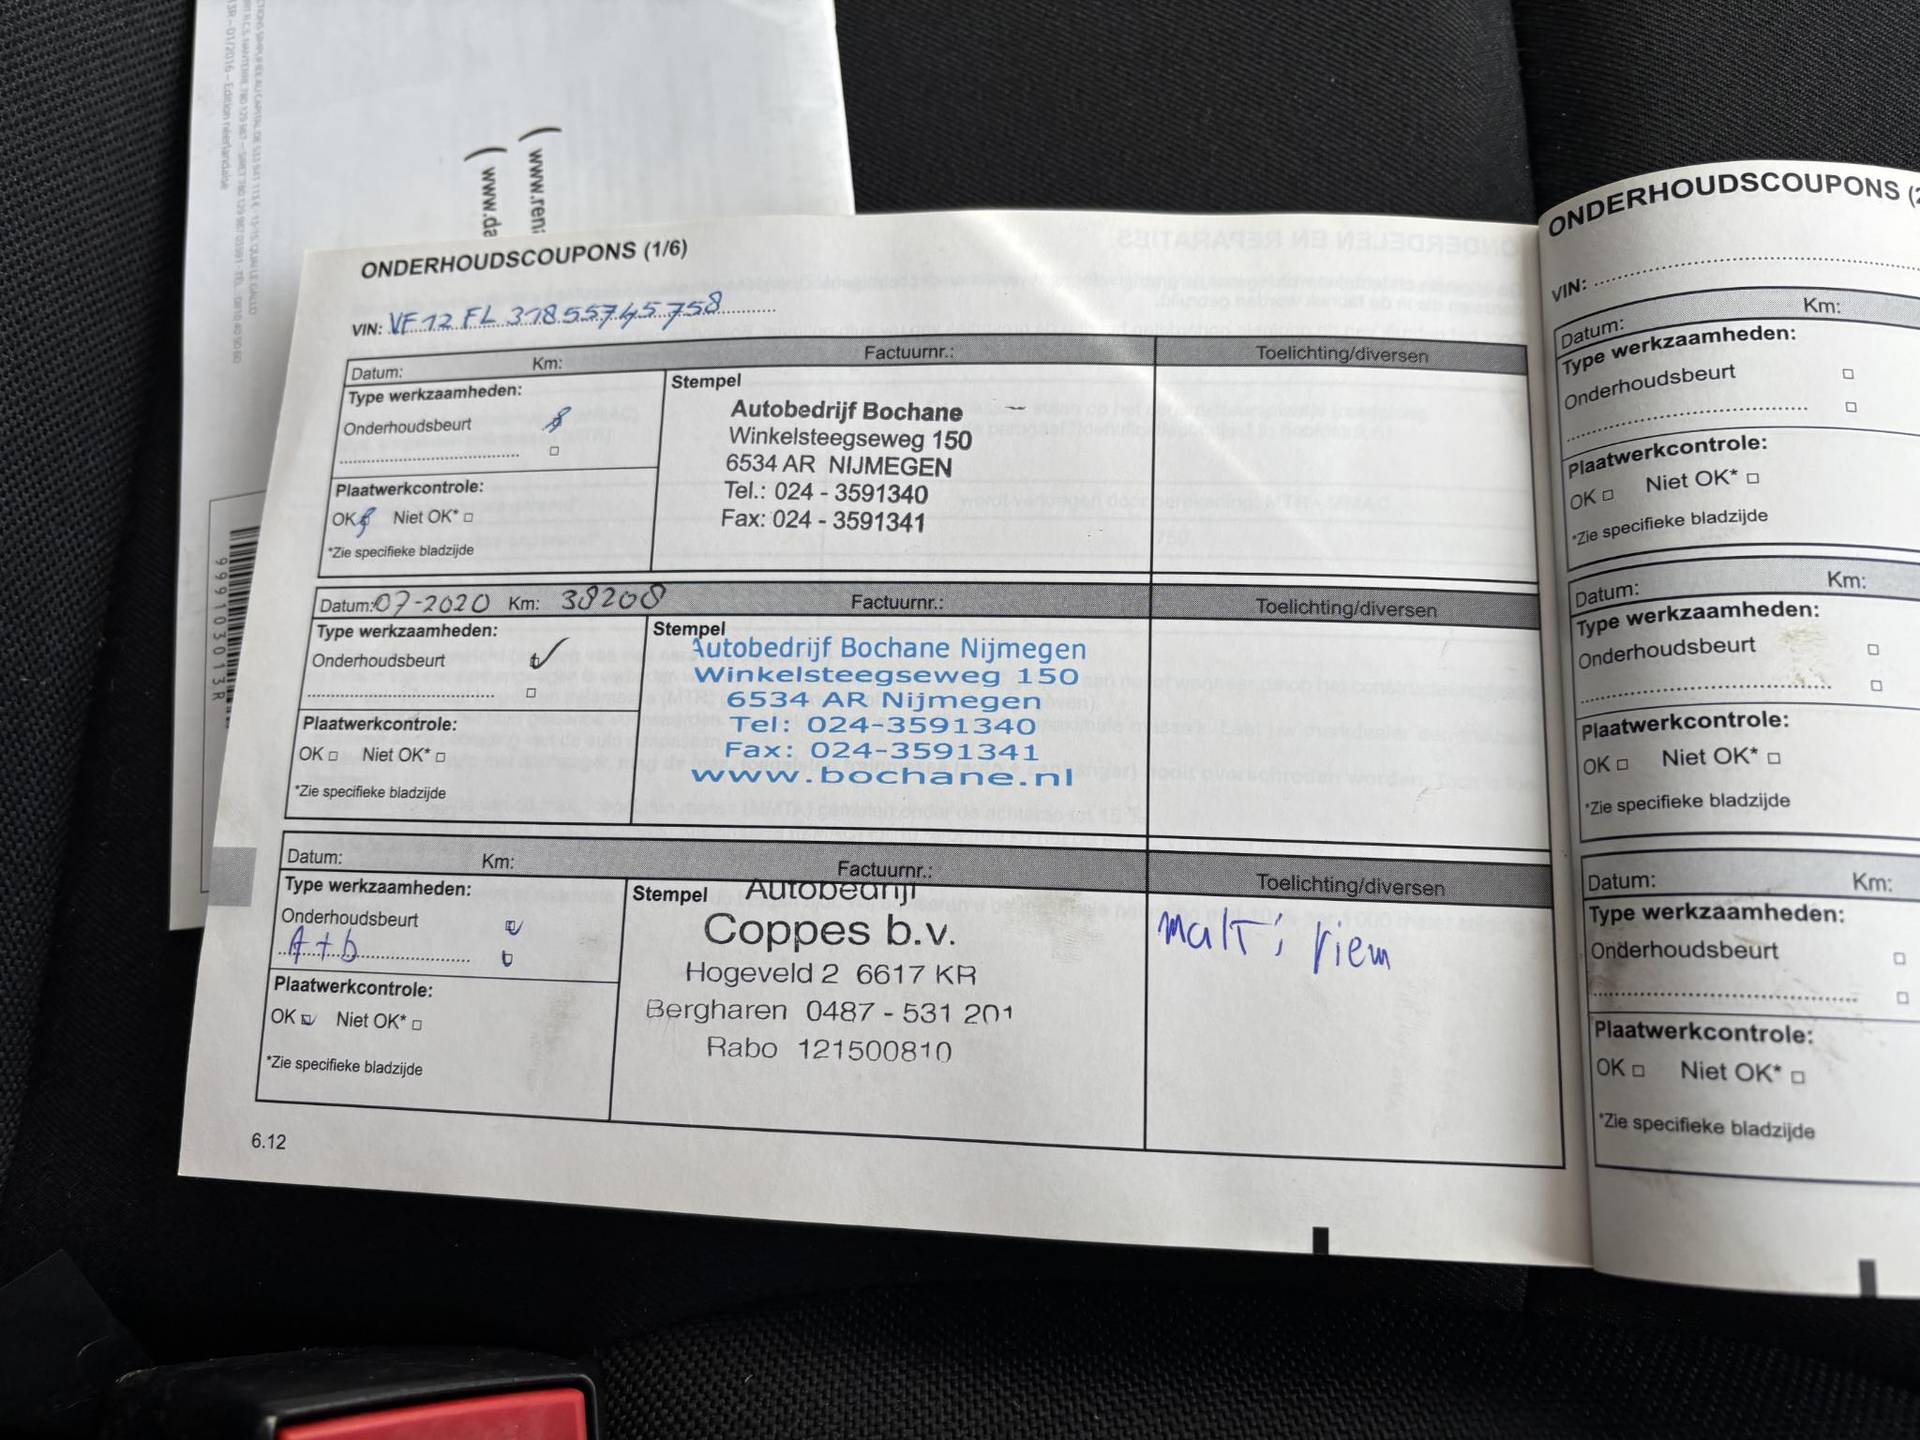 ( www.rena
( www.da
999103013R
ONDERHOUDSCOUPONS (1/6)
VIN: VF12FL31855745758
Datum: Km: Factuurnr.: Toelichting/diversen
Type werkzaamheden:
Onderhoudsbeurt
Plaatwerkcontrole:
OK Niet OK*
*Zie specifieke bladzijde
Stempel
Autobedrijf Bochane
Winkelsteegseweg 150
6534 AR NIJMEGEN
Tel.: 024 - 3591340
Fax: 024 - 3591341
Datum: 07-2020 Km: 38208 Factuurnr.: Toelichting/diversen
Type werkzaamheden:
Onderhoudsbeurt
Plaatwerkcontrole:
OK Niet OK*
*Zie specifieke bladzijde
Stempel
Autobedrijf Bochane Nijmegen
Winkelsteegseweg 150
6534 AR Nijmegen
Tel: 024-3591340
Fax: 024-3591341
www.bochane.nl
Datum: Km: Factuurnr.: Toelichting/diversen
Type werkzaamheden:
Onderhoudsbeurt
A+b
Plaatwerkcontrole:
OK Niet OK*
*Zie specifieke bladzijde
Stempel
Autobedrijf
Coppes b.v.
Hogeveld 2 6617 KR
Bergharen 0487 - 531 201
Rabo 121500810
malti riem
6.12
ONDERHOUDSCOUPONS (2
VIN:
Datum: Km:
Type werkzaamheden:
Onderhoudsbeurt
Plaatwerkcontrole:
OK Niet OK*
*Zie specifieke bladzijde
Datum: Km:
Type werkzaamheden:
Onderhoudsbeurt
Plaatwerkcontrole:
OK Niet OK*
*Zie specifieke bladzijde
Datum: Km:
Type werkzaamheden:
Onderhoudsbeurt
Plaatwerkcontrole:
OK Niet OK*
*Zie specifieke bladzijde